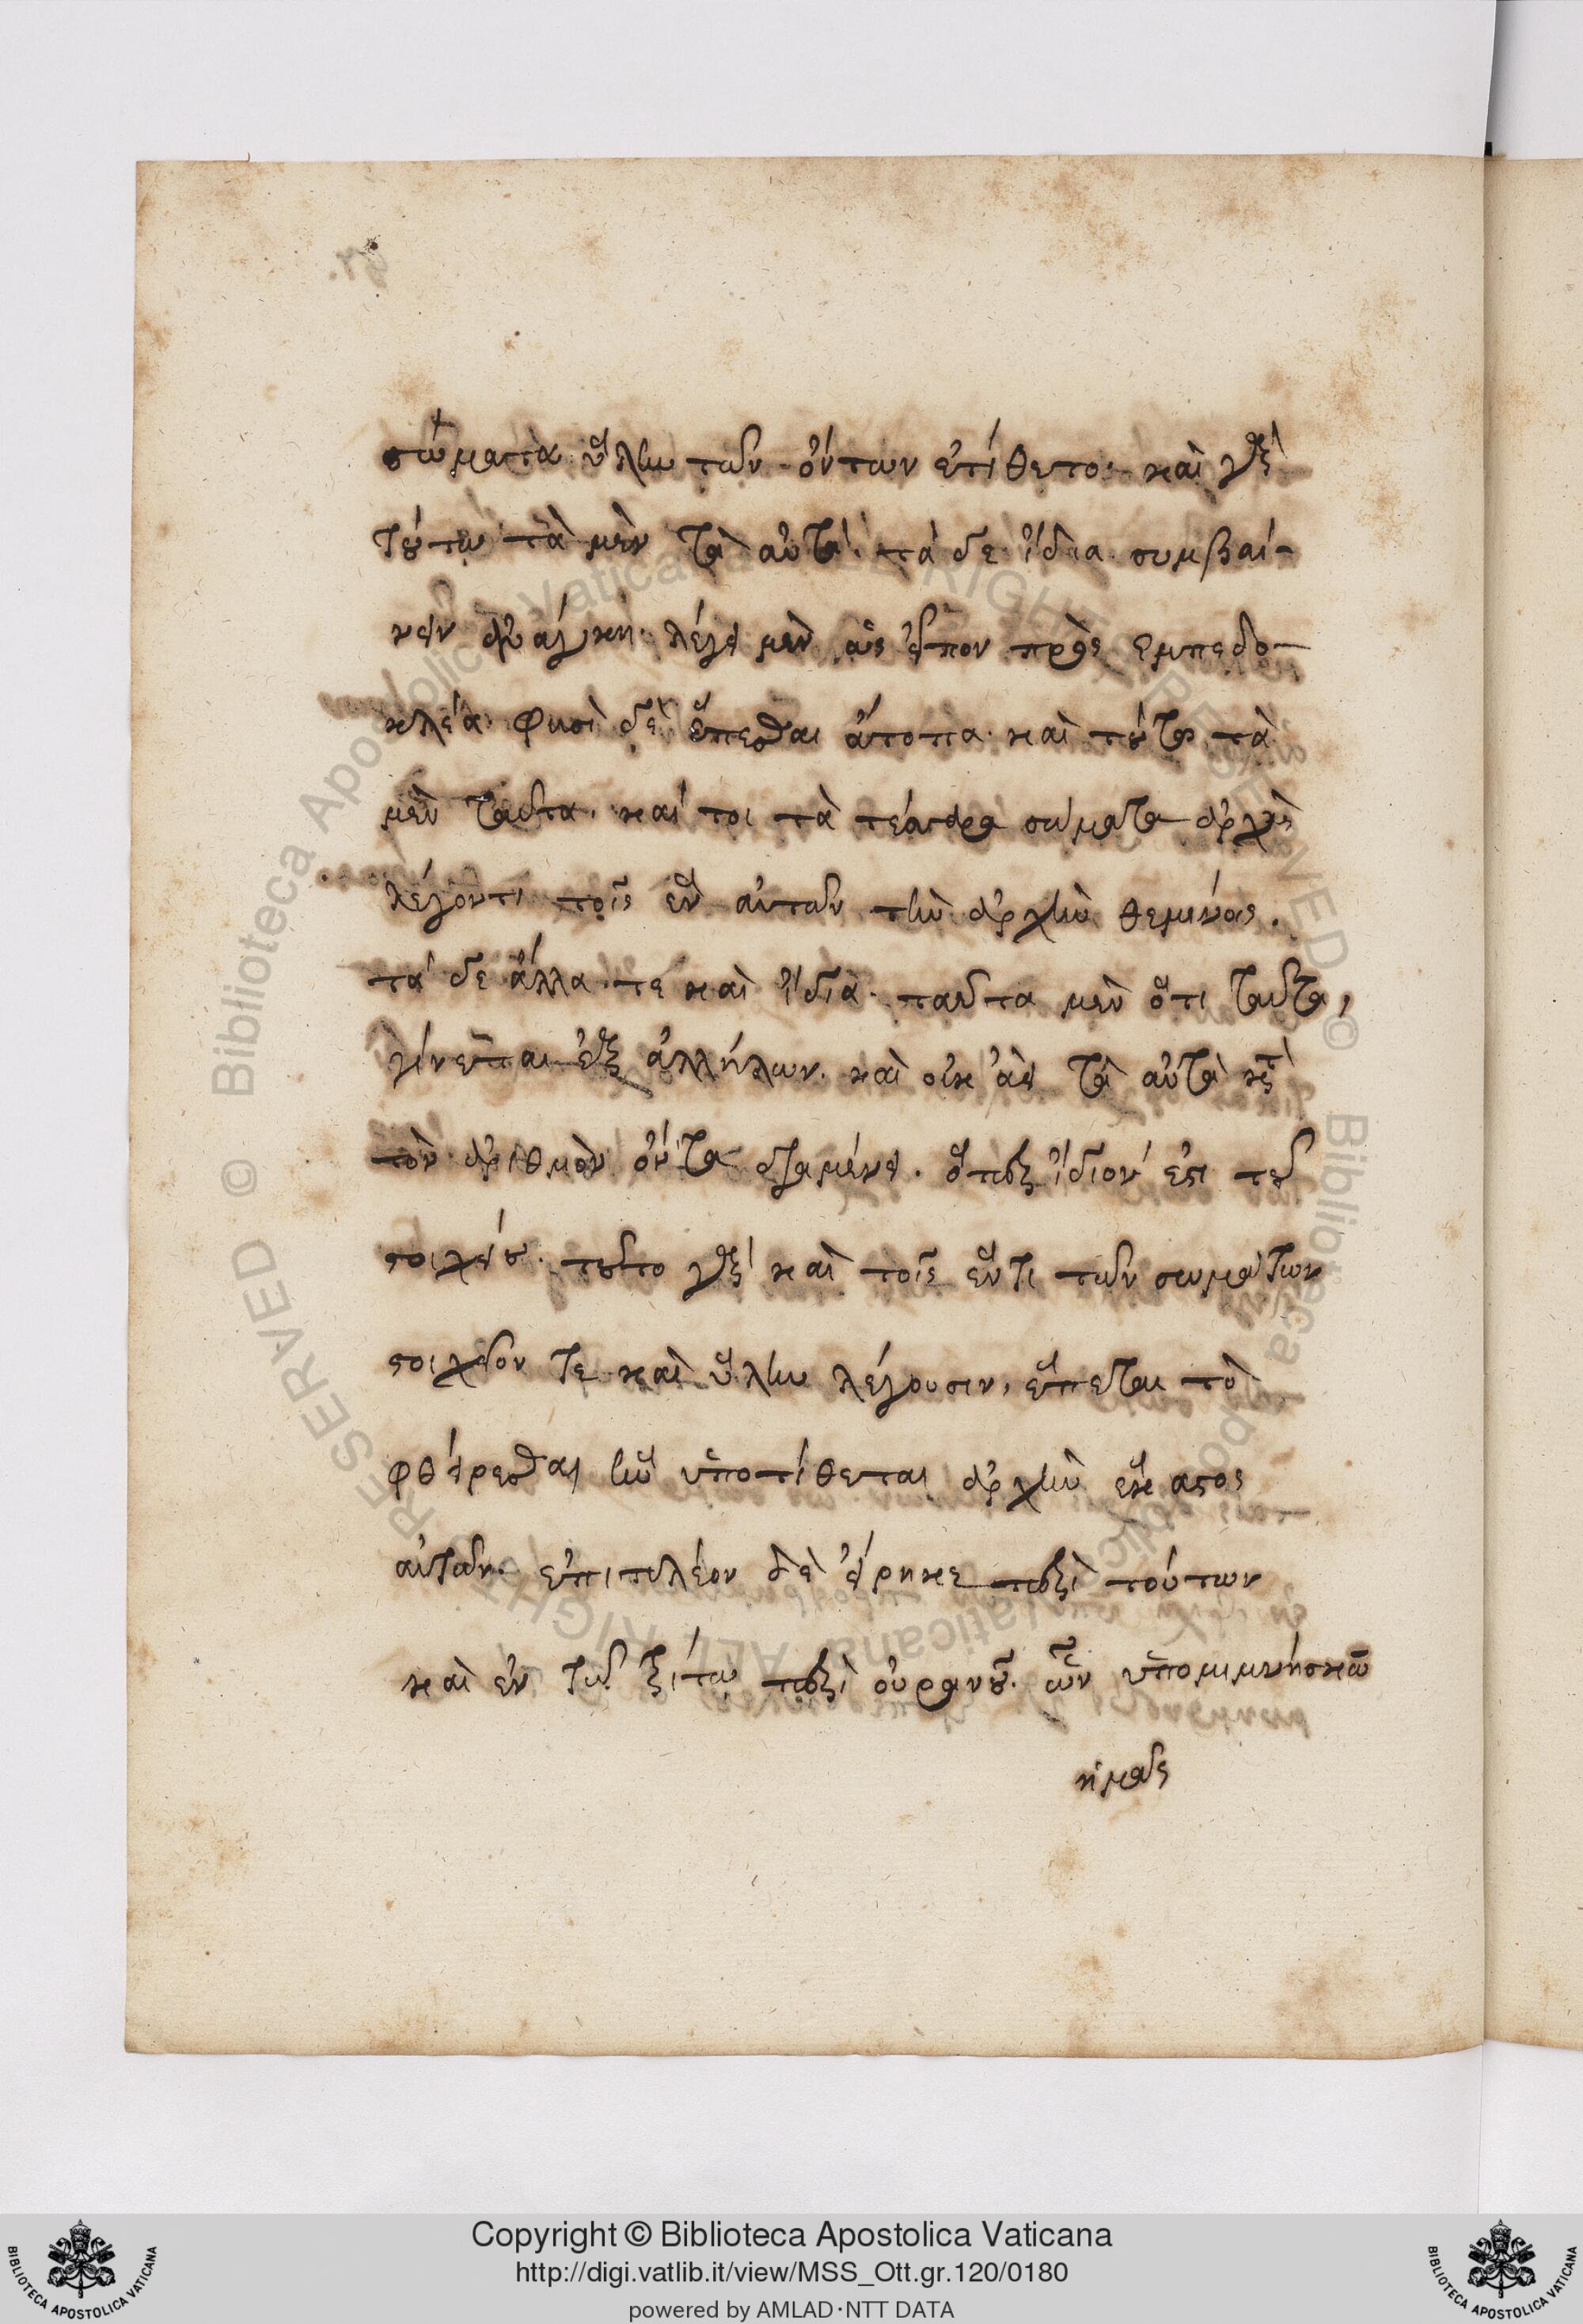 σώματα ὕλην τῶν ὄντων ἐτίθετο· καὶ γὰρ
τούτω τὰ μὲν τὰ αὐτὰ· τὰ δὲ ἴδια συμβαί-
νειν ἀνάγκη· λέγει μὲν ὡς εἶπον πρὸς ἐμπεδο-
κλέα· φησὶ δὲ ἕπεσθαι ἄτοπα· καὶ τούτω τὰ
μὲν ταῦτα· καί τοι τὰ τέσσαρα σώματα ἀρχὰς
λέγοντι τοῖς ἓν αὐτῶν τὴν ἀρχὴν θεμένοις.
τὰ δὲ ἄλλα τε καὶ ἴδια· ταῦτα μὲν ὅτι ταῦτα,
γίνεται ἐξ ἀλλήλων· καὶ οὐκ ἀεὶ τὰ αὐτὰ κατὰ
τὸν ἀριθμὸν ὄντα διαμένει. ὅπερ ἴδιον ἐστὶ τοῦ
στοιχείου· τοῦτο γὰρ καὶ τοῖς ἕν τι τῶν σωμάτων
στοιχεῖον τε καὶ ὕλην λέγουσιν, ἕπεται τὸ
φθείρεσθαι ἣν ὑποτίθεται ἀρχὴν ἕκαστος
αὐτῶν· ἐπιπλέον δὲ εἴρηκε περὶ τούτων
καὶ ἐν τῷ τρίτω περὶ οὐρανοῦ· ὧν ὑπομιμνήσκων
ἡμᾶς
Copyright © Biblioteca Apostolica Vaticana
http://digi.vatlib.it/view/MSS_Ott.gr.120/0180
powered by AMLAD·NTT DATA